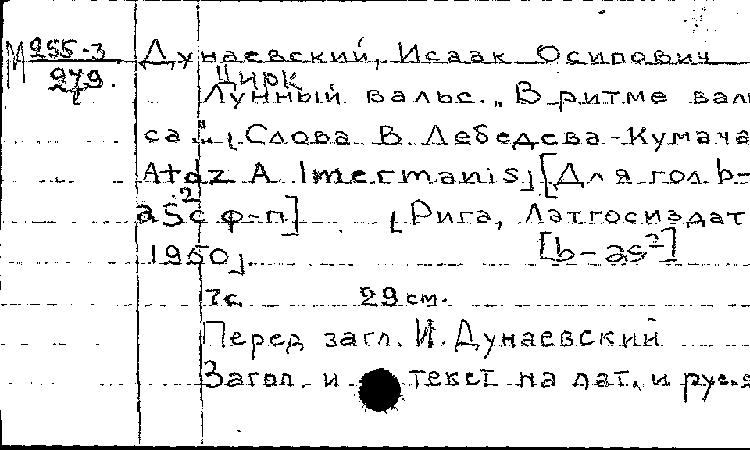 М 255-3 Дунаевский, Исаак Осипович
279. Цирк
Лунный вальс. „В ритме валь
са." [Слова В. Лебедева-Кумача
Atdz A. Imermanis] [Для гол. b-
as² с ф-п] [Рига, Латгосиздат
1950]. [b-as²]
7с 29 см.
Перед загл. И. Дунаевский
Загол. и текст на лат. и рус. я